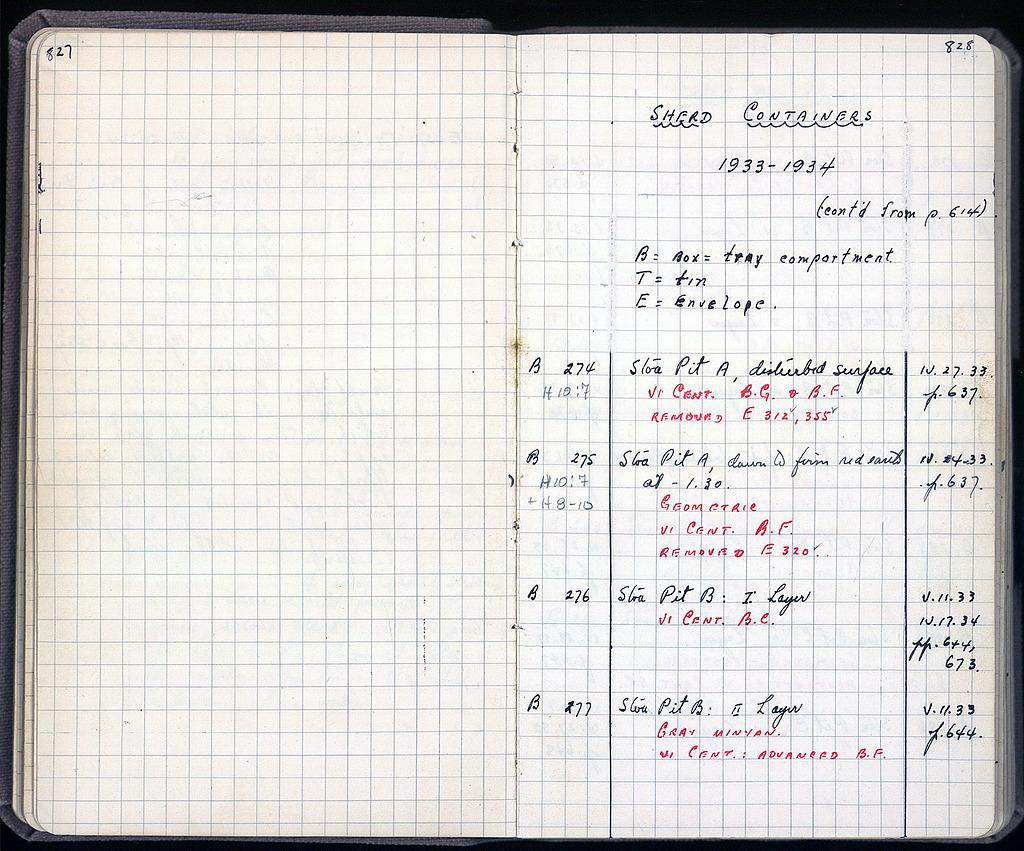 827
828
SHERD CONTAINERS
1933-1934
(cont'd from p. 614)
B = Box = tray compartment.
T = tin
E = Envelope.
B 274 Stoa Pit A, disturbed surface IV. 27. 33.
H 10:7 VI CENT. B.G. & B.F. p. 637.
REMOVED E 312, 355
B 275 Stoa Pit A, down to firm red earth IV. 24-33.
H10:7 at - 1.30. p. 637.
+ H 8-10 GEOMETRIC
VI CENT. B.F.
REMOVED E 320
B 276 Stoa Pit B: I Layer V. 11. 33
VI CENT. B.C. IV. 17. 34
pp. 644,
673.
B 277 Stoa Pit B: II Layer V. 11. 33
GRAY MINYAN. p. 644.
VI CENT.: ADVANCED B.F.